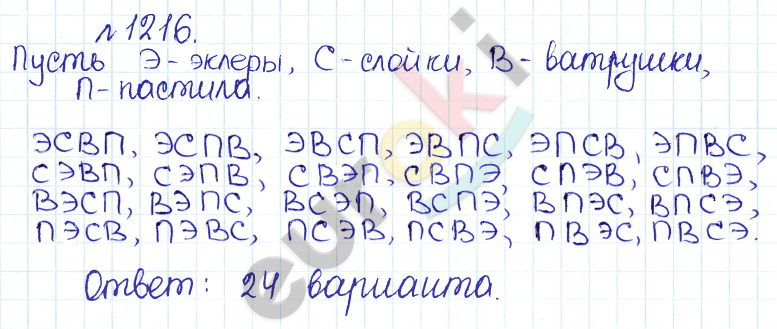 №1216.
Пусть Э-эклеры, С-слойки, В-ватрушки,
П-пастила.
ЭСВП, ЭСПВ, ЭВСП, ЭВПС, ЭПСВ, ЭПВС,
СЭВП, СЭПВ, СВЭП, СВПЭ, СПЭВ, СПВЭ,
ВЭСП, ВЭПС, ВСЭП, ВСПЭ, ВПЭС, ВПСЭ,
ПЭСВ, ПЭВС, ПСЭВ, ПСВЭ, ПВЭС, ПВСЭ.
Ответ: 24 варианта.
euroki